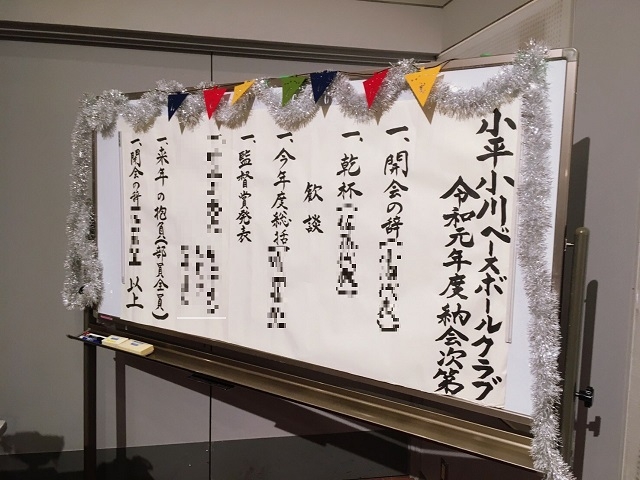 小平小川ベースボールクラブ
令和元年度納会次第
一、開会の辞(
一、乾杯(
歓談
一、今年度総括
一、監督賞発表
一、来年の抱負(部員全員)
一、閉会の辞(
以上